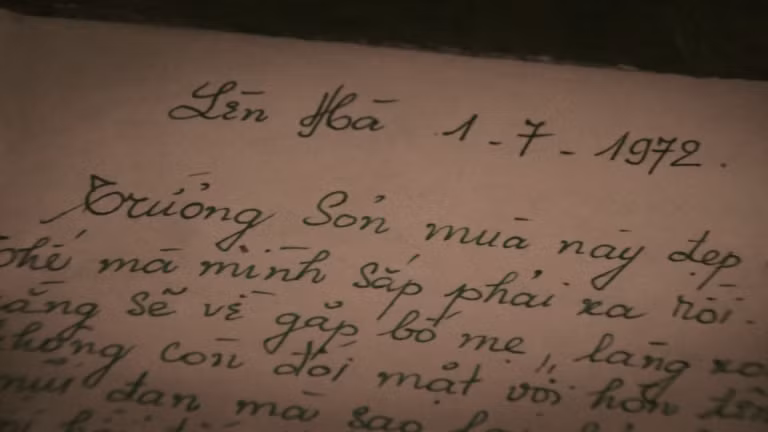 Lên Hà 1-7-1972.
Trường Sơn mùa này đẹp
thế mà mình sắp phải xa rồi.
sẽ về gặp bố mẹ, làng
không còn đối mặt với hòn tên
mũi đạn mà sao